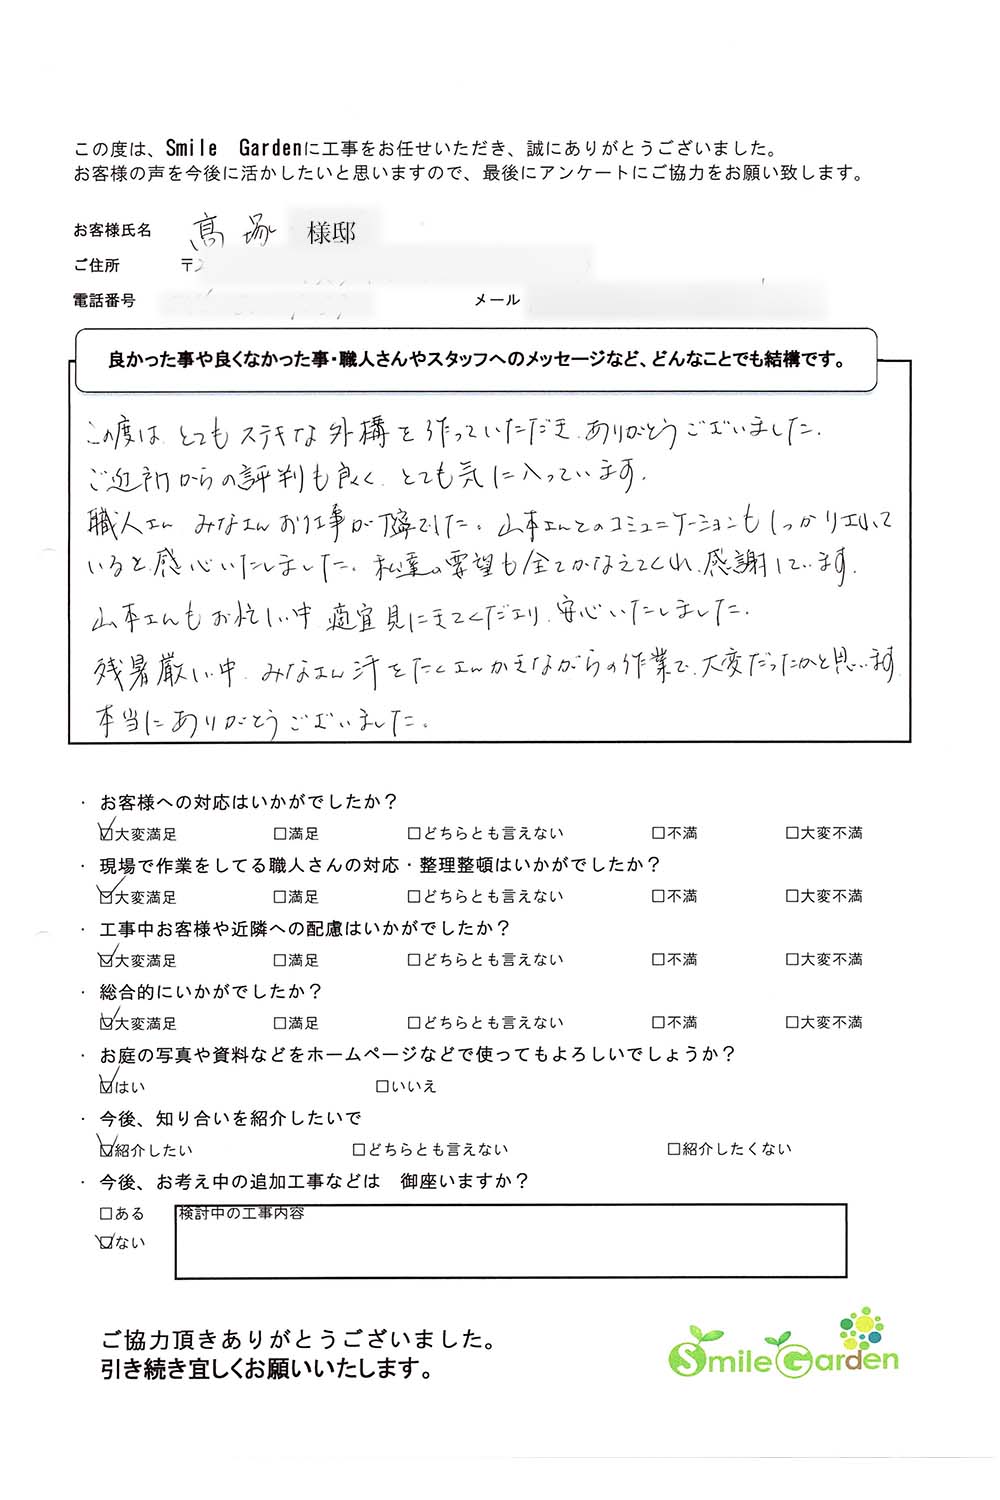 この度は、Smile Gardenに工事をお任せいただき、誠にありがとうございました。
お客様の声を今後に活かしたいと思いますので、最後にアンケートにご協力をお願い致します。
お客様氏名 高塚 様邸
ご住所 〒
電話番号 メール
良かった事や良くなかった事・職人さんやスタッフへのメッセージなど、どんなことでも結構です。
この度は、とてもステキな外構を作っていただき、ありがとうございました。
ご近所からの評判も良く、とても気に入っています。
職人さん みなさんお仕事が丁寧でした。山本さんとのコミュニケーションもしっかりとれて
いると、感心いたしました。私達の要望も全てかなえてくれ、感謝しています。
山本さんもお忙しい中 適宜見にきてくださり、安心いたしました。
残暑厳しい中、みなさん汗をたくさんかきながらの作業で、大変だったかと思います。
本当にありがとうございました。
・ お客様への対応はいかがでしたか？
☑大変満足 □満足 □どちらとも言えない □不満 □大変不満
・ 現場で作業をしてる職人さんの対応・整理整頓はいかがでしたか？
☑大変満足 □満足 □どちらとも言えない □不満 □大変不満
・ 工事中お客様や近隣への配慮はいかがでしたか？
☑大変満足 □満足 □どちらとも言えない □不満 □大変不満
・ 総合的にいかがでしたか？
☑大変満足 □満足 □どちらとも言えない □不満 □大変不満
・ お庭の写真や資料などをホームページなどで使ってもよろしいでしょうか？
☑はい □いいえ
・ 今後、知り合いを紹介したいで
☑紹介したい □どちらとも言えない □紹介したくない
・ 今後、お考え中の追加工事などは 御座いますか？
□ある 検討中の工事内容
☑ない
ご協力頂きありがとうございました。
引き続き宜しくお願いいたします。
Smile Garden